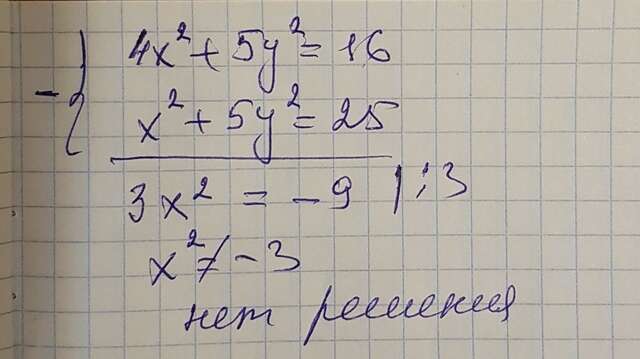 - { 4x² + 5y² = 16
x² + 5y² = 25
3x² = - 9 | : 3
x² ≠ - 3
нет решения